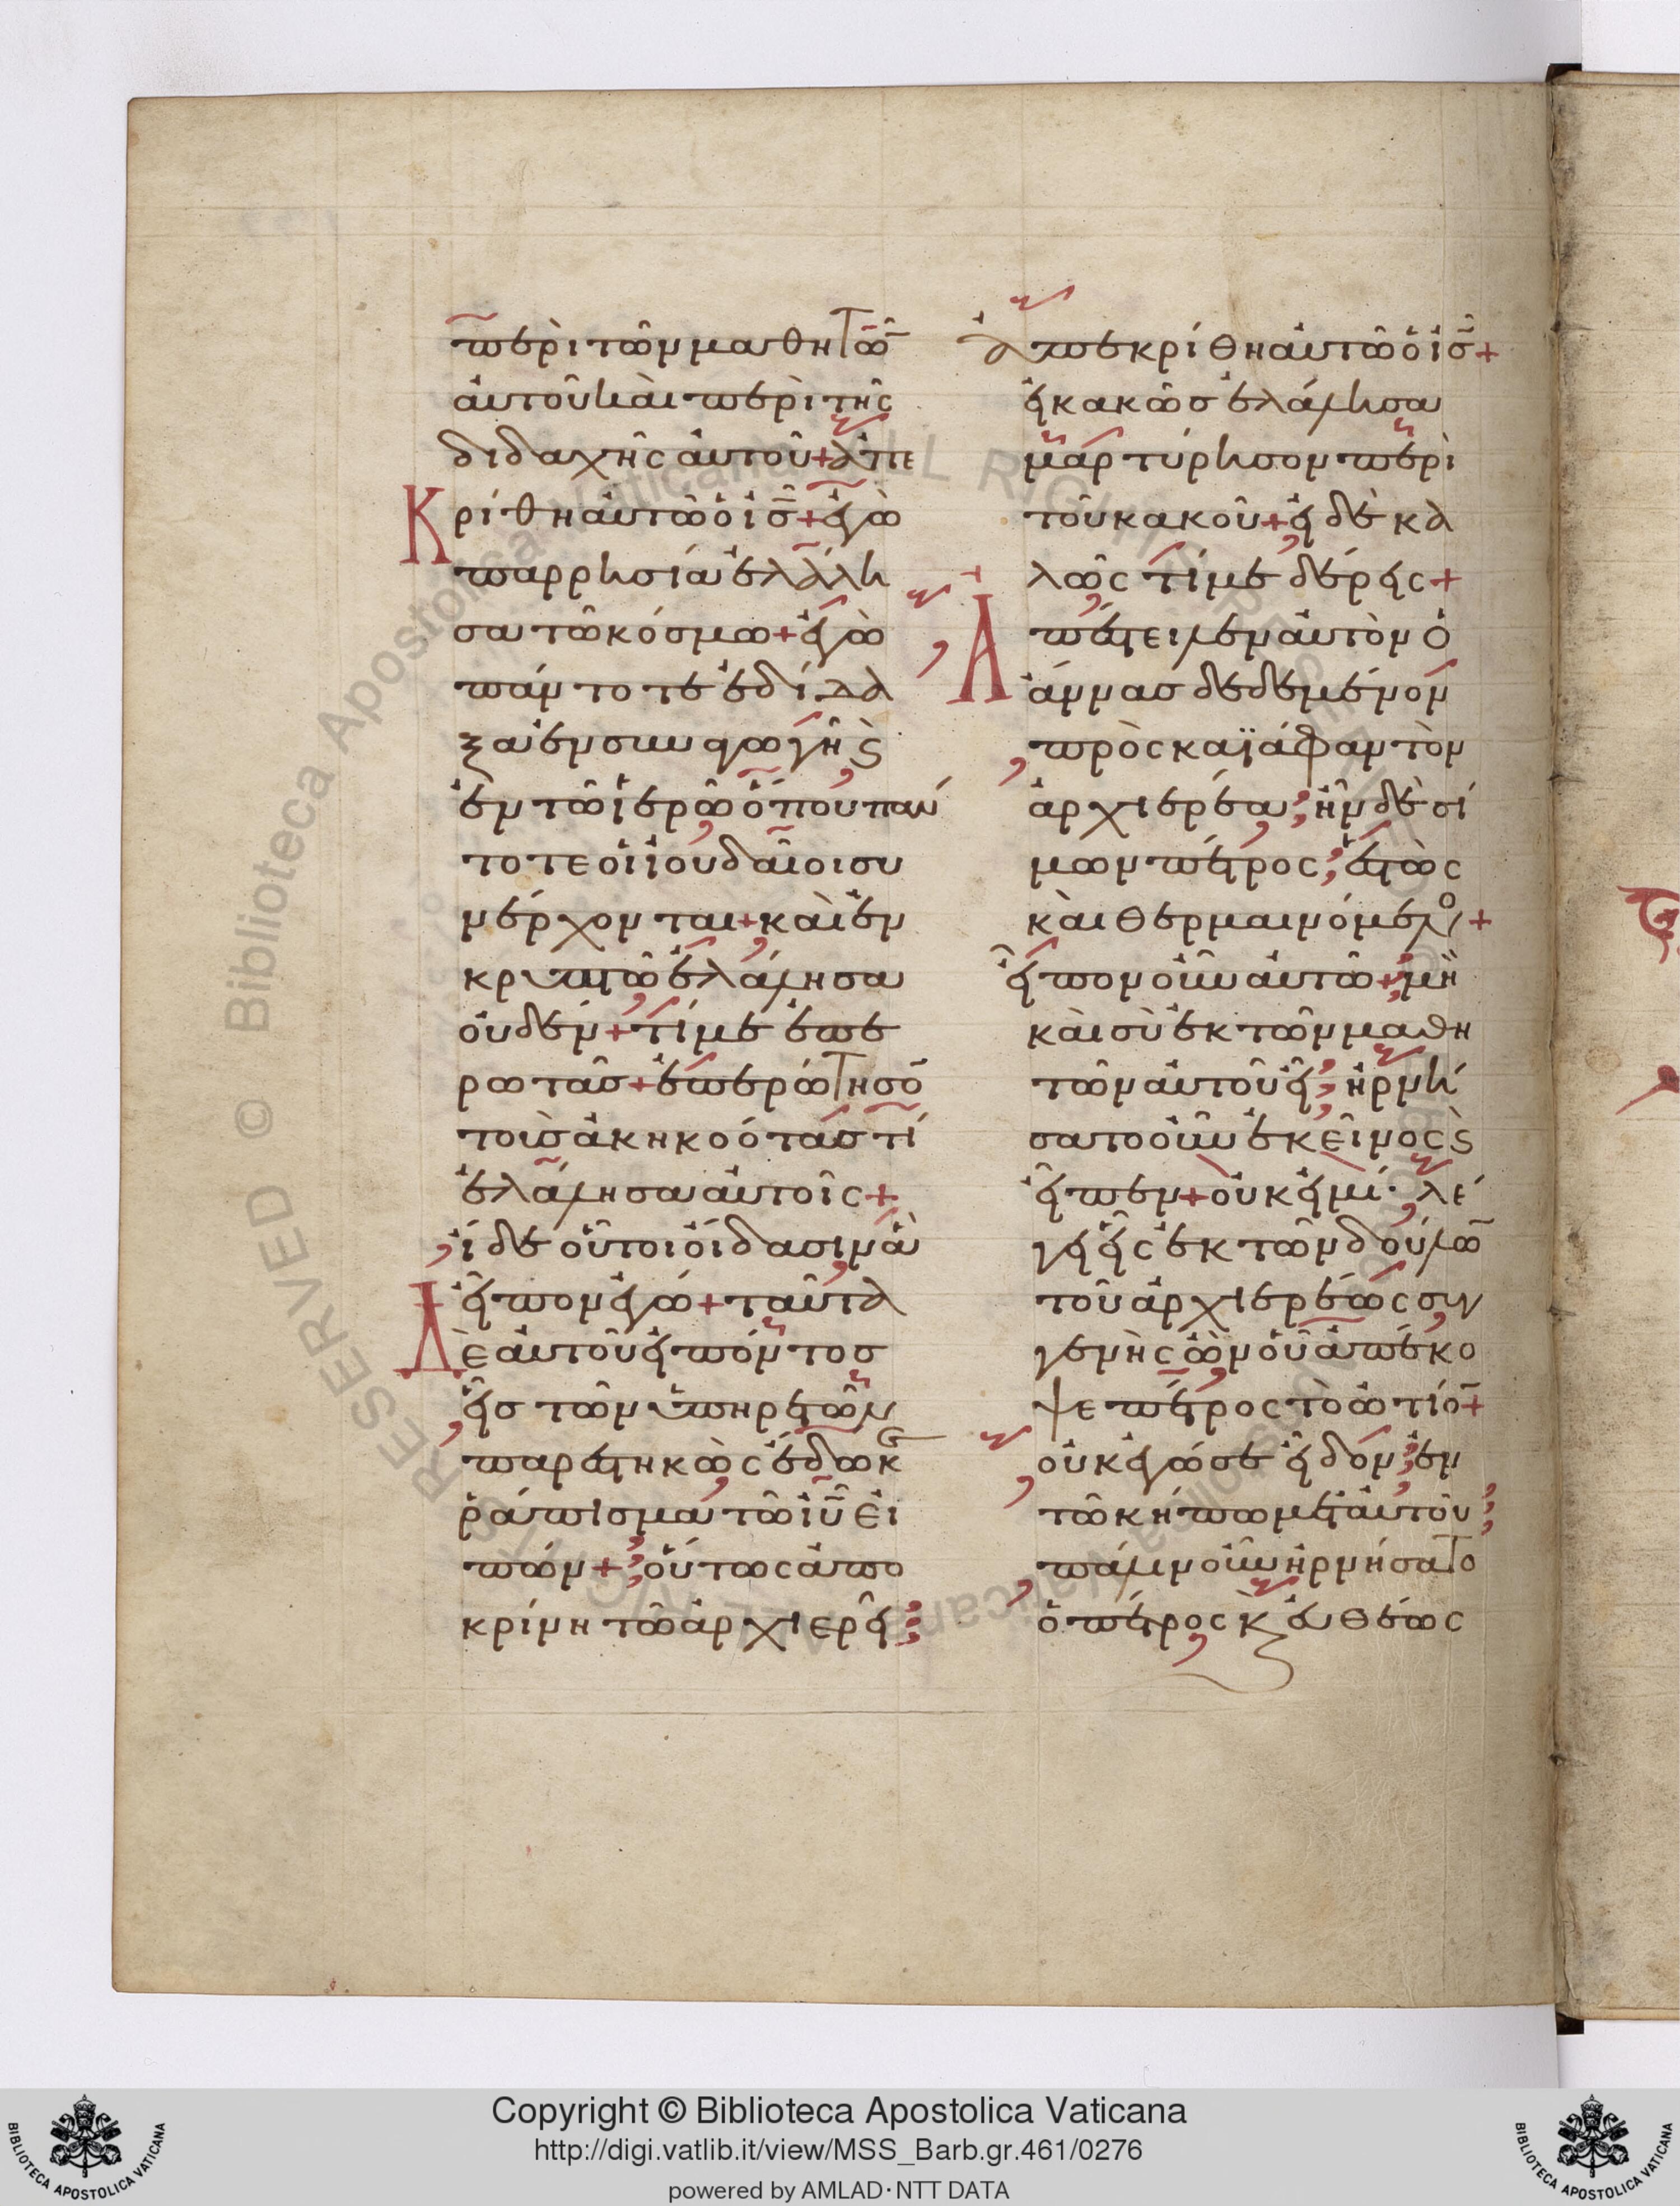 περὶ τῶν μαθητῶ̄
ἀυτοῦ καὶ περὶ τῆς
διδαχῆς ἀυτοῦ + ἀπε
κρίθη ἀυτῶ ὁ ἰ̅ς̅ + ἐγὼ
παρρησία ἐλάλη
σα τῶ κόσμω + ἐγὼ
πάντοτε ἐδίδα
ξα ἐν συναγωγῆ ϛ̀
ἐν τῶ ἱερῶ ὅπου πάν
τοτε οἱ ἰουδαῖοι συ
νέρχονται + καὶ ἐν
κρυπτῶ ἐλάλησα
οὐδέν + τί με ἐπε
ρωτᾶσ + ἐπερώτησο̄
τοὺσ ἀκηκοότασ τί
ἐλάλησα ἀυτοῖς +
ἴδε οὗτοι ὄιδασιν ἃ
εἶπον ἐγώ + ταῦτα
Δὲ ἀυτοῦ εἰπόντοσ
εἷσ τῶν ὑπηρετῶν
παρεστηκὼς ἔδωκε
ῥάπισμα τῶ ἰ̅υ̅ εἰ
πών + οὕτως ἀπο
κρίνη τῶ ἀρχιερεῖ
ἀπεκρίθη ἀυτῶ ὁ ἰ̅σ̅ +
εἰ κακῶσ ἐλάλησα
μαρτύρησον περὶ
τοῦ κακοῦ + εἰ δὲ κα
λῶς τί με δέρεις +
Ἀπέστειλεν ἀυτὸν ὁ
ἄννασ δεδεμένον
πρὸς καϊάφαν τὸν
ἀρχιερέα ἦν δὲ σί
μων πέτρος ἑστὼς
καὶ θερμαινόμενο +
εἶπον οὖν ἀυτῶ + μὴ
καὶ σὺ ἐκ τῶν μαθη
τῶν ἀυτοῦ εἶ ἠρνή
σατο οὖν ἐκεῖνος ϛ̀
εἶπεν + οὐκ εἰμί · λέ
γει εἷς ἐκ τῶν δούλω̄
τοῦ ἀρχιερέως συγ
γενὴς ὢν οὗ ἀπέκο
ψε πέτρος τὸ ὠτίο̄ +
οὐκ ἐγώ σε εἶδον ἐν
τῶ κήπω μετ ἀυτοῦ
πάλιν οὖν ἠρνήσατο
ὁ πέτρος κ̀ ἐυθέως
Copyright © Biblioteca Apostolica Vaticana
http://digi.vatlib.it/view/MSS_Barb.gr.461/0276
powered by AMLAD·NTT DATA